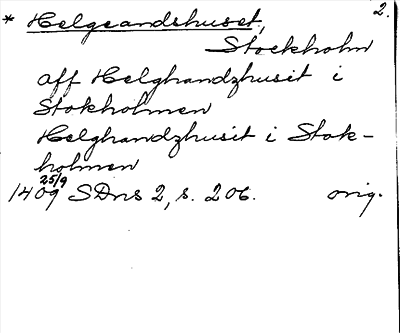 2.
* Helgeandshuset,
Stockholm
aff Helghandzhusit i
Stokholmen
Helghandzhusit i Stok-
holmen
25/9
1409 SDns 2, s. 206. orig.